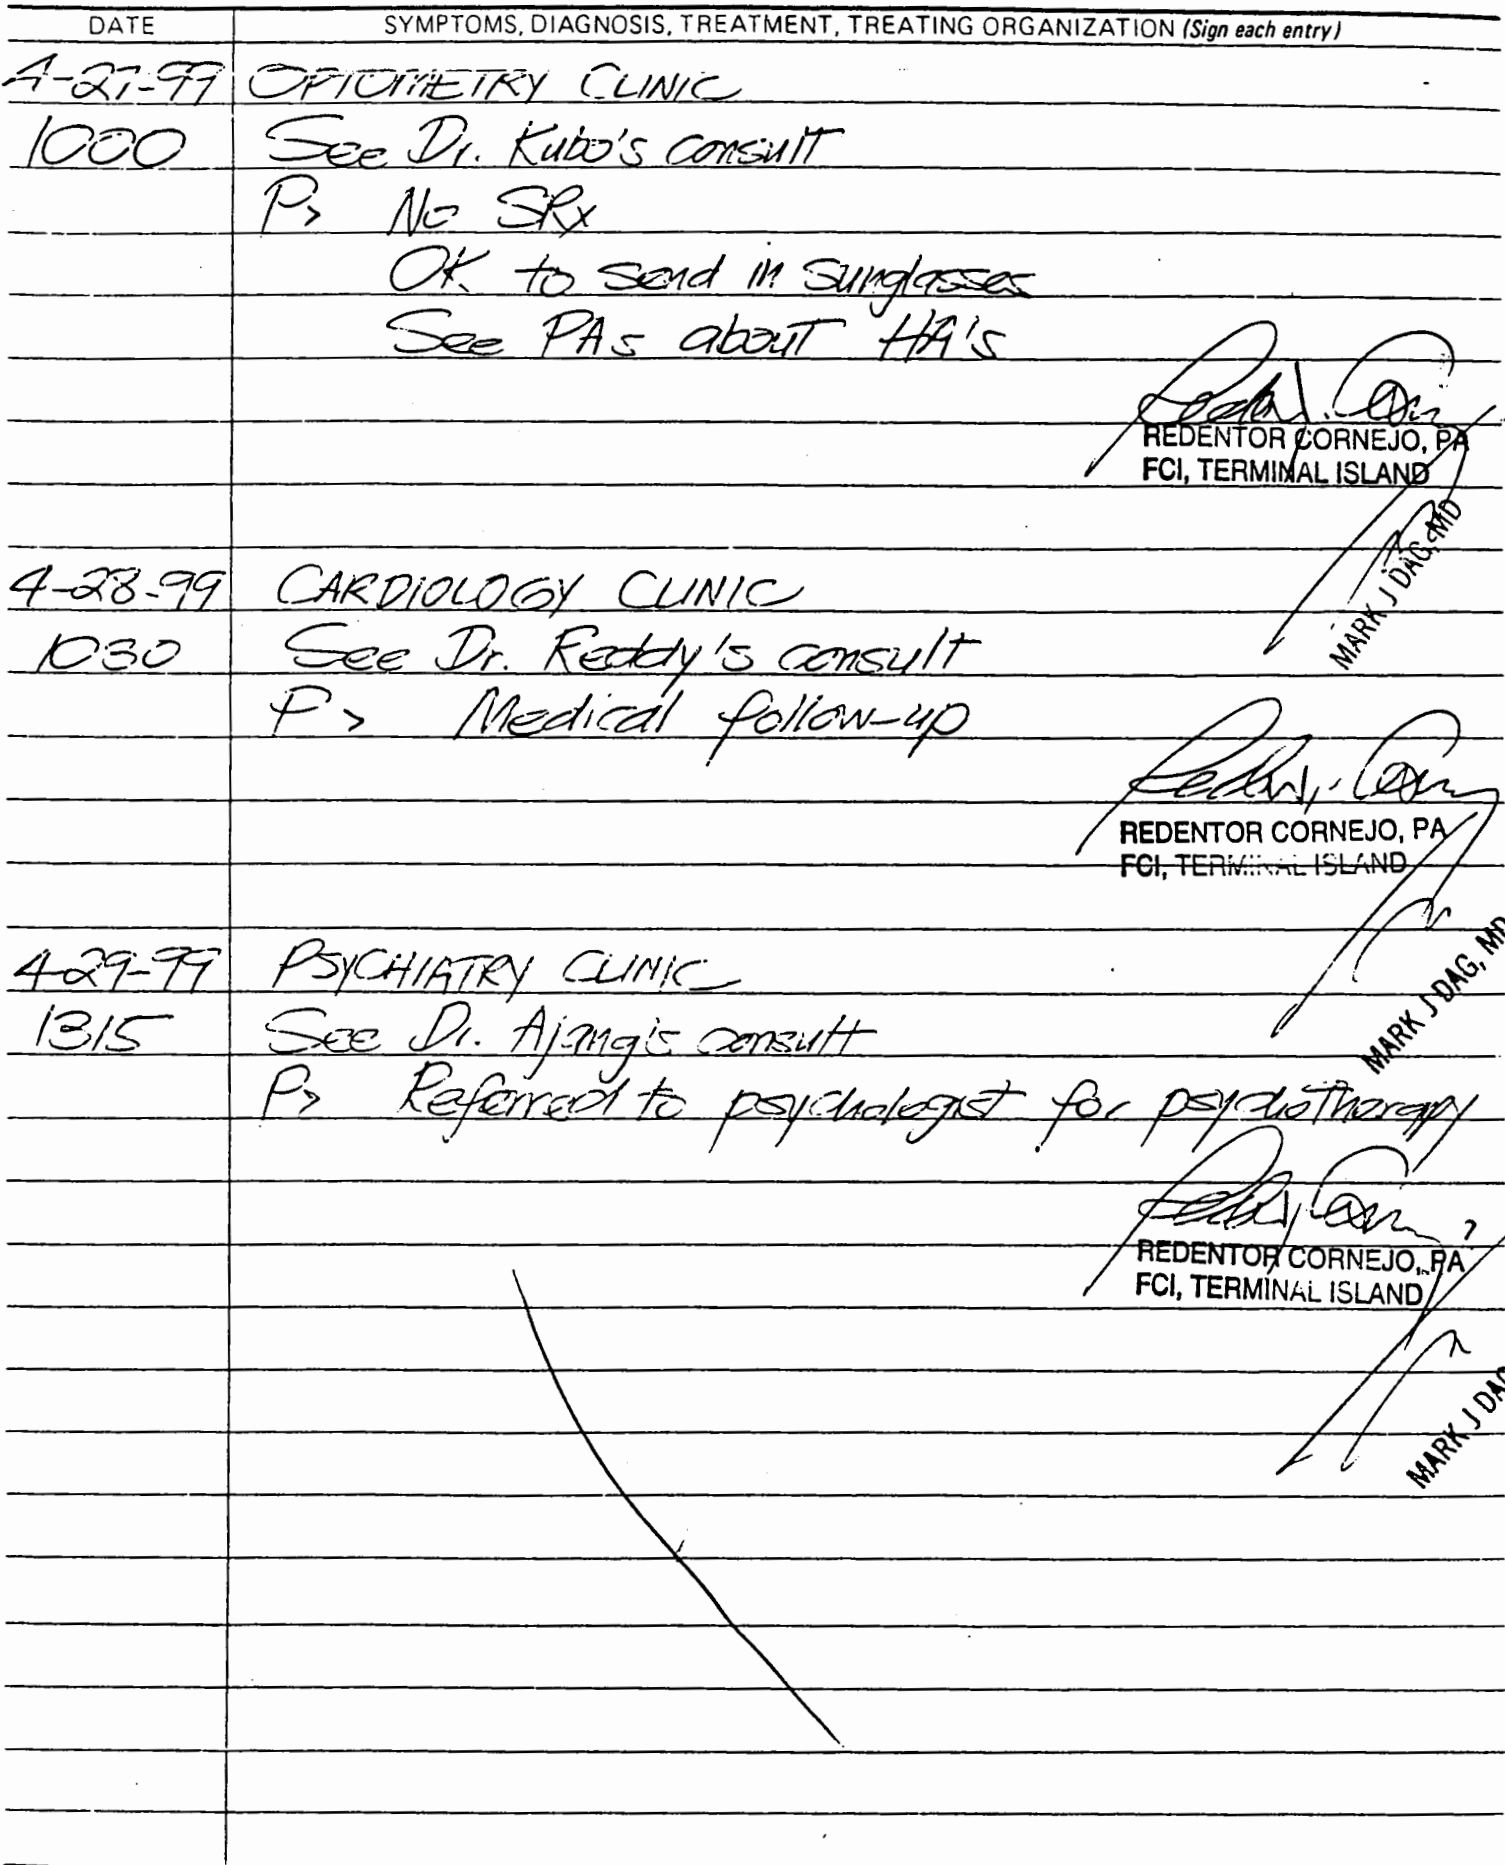 DATE SYMPTOMS, DIAGNOSIS, TREATMENT, TREATING ORGANIZATION (Sign each entry)
4-27-99 OPTOMETRY CLINIC
1000 See Dr. Kubo's consult
P> No SRx
OK to send in sunglasses
See PAs about HA's
REDENTOR CORNEJO, PA
FCI, TERMINAL ISLAND
MARK J DAG, MD
4-28-99 CARDIOLOGY CLINIC
1030 See Dr. Reddy's consult
P> Medical follow-up
REDENTOR CORNEJO, PA
FCI, TERMINAL ISLAND
MARK J DAG, MD
4-29-99 PSYCHIATRY CLINIC
1315 See Dr. Ajang's consult
P> Referred to psychologist for psychotherapy
REDENTOR CORNEJO, PA
FCI, TERMINAL ISLAND
MARK J DAG